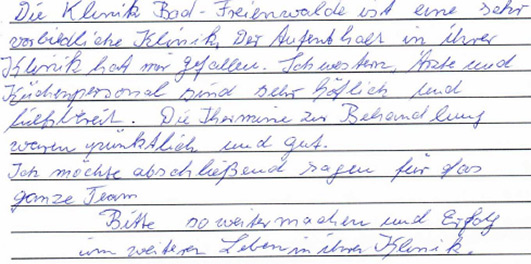 Die Klinik Bad-Freienwalde ist eine sehr
vorbildliche Klinik, Der Aufenthalt in ihrer
Klinik hat mir gefallen. Schwestern, Ärzte und
Küchenpersonal sind sehr höflich und
hilfsbereit. Die Thermine zur Behandlung
waren pünktlich und gut.
Ich möchte abschließend sagen für das
ganze Team
Bitte so weiter machen und Erfolg
im weiteren Leben in ihrer Klinik.